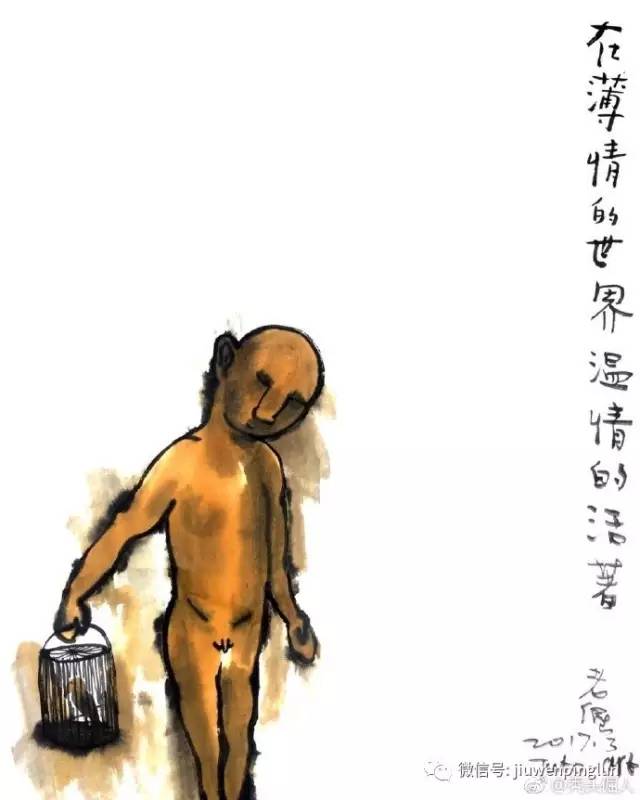 在薄情的世界温情的活著
2017.3
微信号: jiuwenpinglun